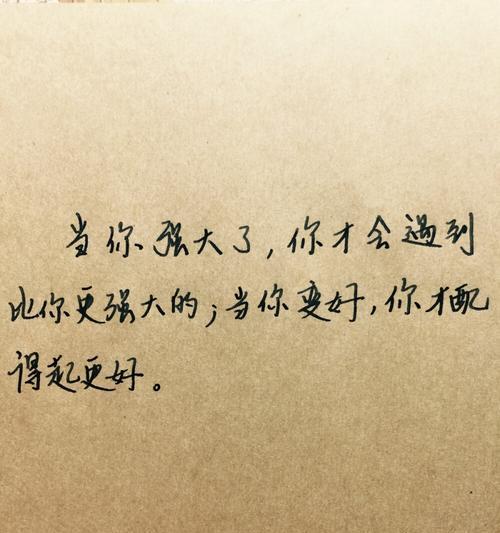 当你强大了，你才会遇到
比你更强大的；当你变好，你才配
得起更好。